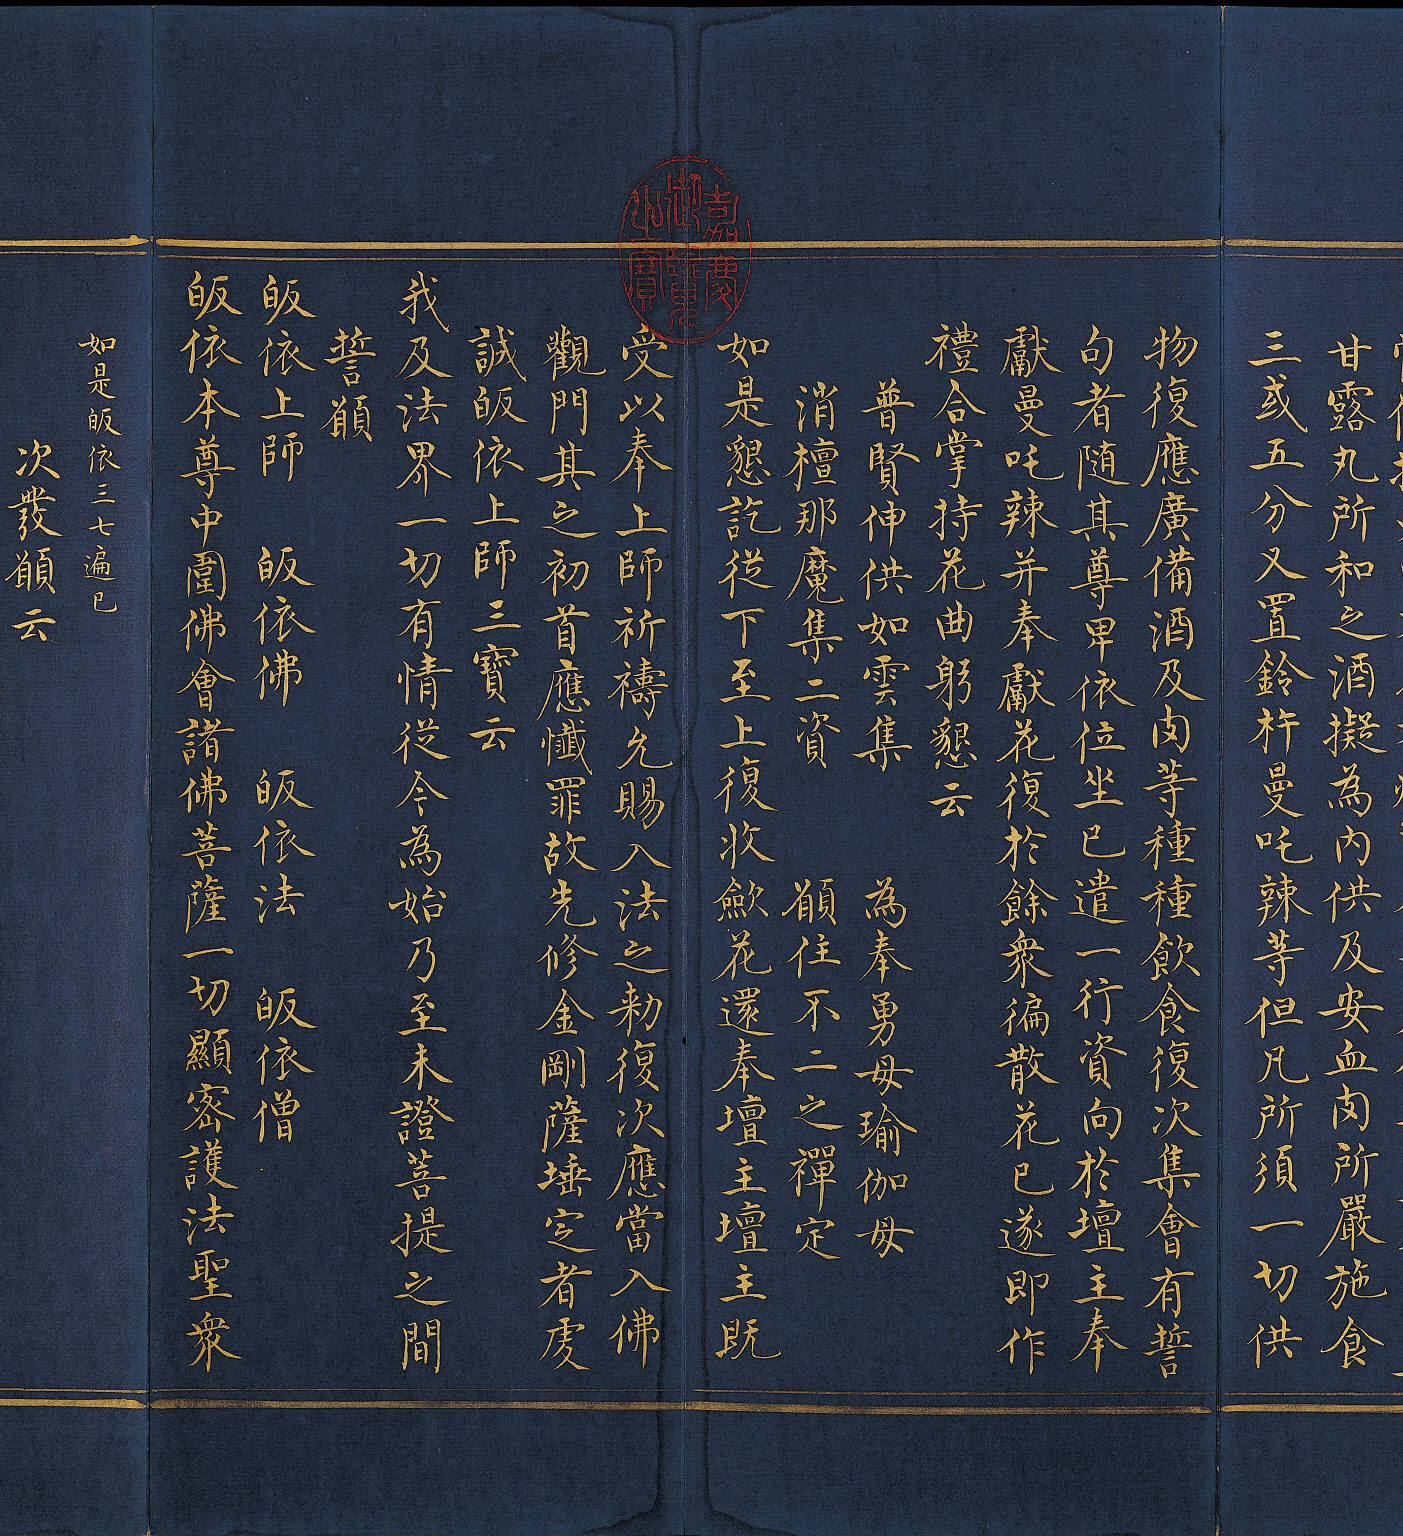 甘露丸所和之酒擬為內供及安血肉所嚴施食
三或五分又置鈴杵曼吒辣等但凡所須一切供
物復應廣備酒及肉等種種飲食復次集會有誓
句者随其尊卑依位坐已遣一行資向於壇主奉
獻曼吒辣并奉獻花復於餘衆徧散花已遂即作
禮合掌持花曲躬懇云
普賢伸供如雲集　為奉勇母瑜伽母
消檀那魔集二資　願住不二之禪定
如是懇訖從下至上復收歛花還奉壇主壇主既
受以奉上師祈禱允賜入法之勑復次應當入佛
觀門其之初首應懺罪故先修金剛薩埵定者虔
誠皈依上師三寶云
我及法界一切有情從今為始乃至未證菩提之間
誓願
皈依上師　皈依佛　皈依法　皈依僧
皈依本尊中圍佛會諸佛菩薩一切顯密護法聖衆
如是皈依三七遍已
次發願云
嘉慶御覽之寶